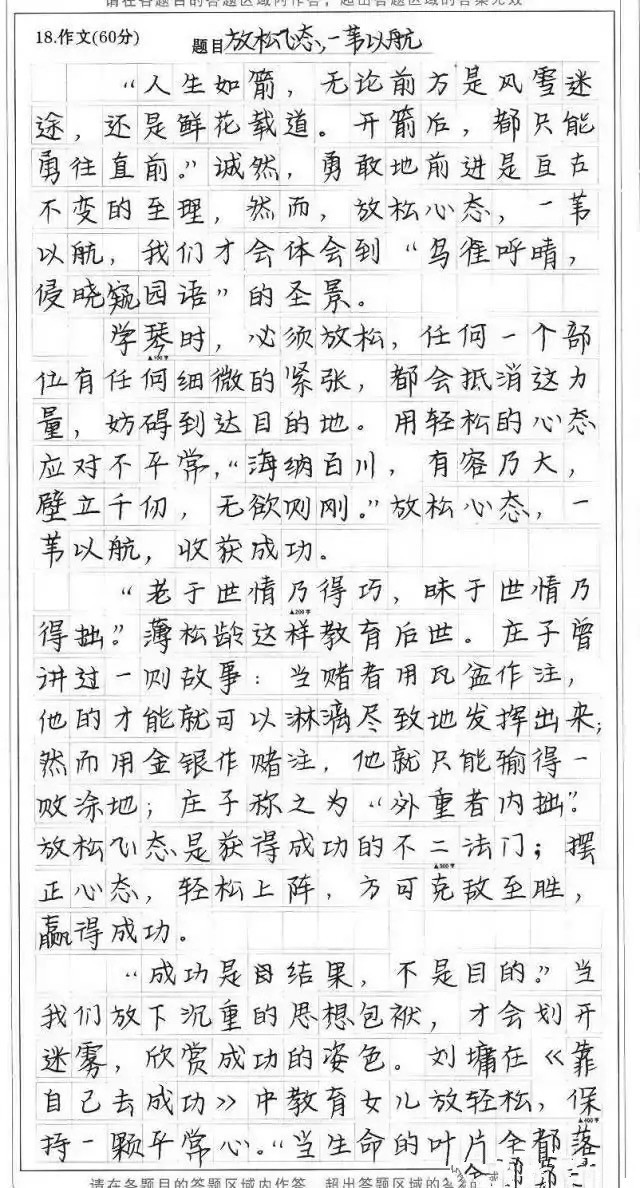 请在各题目的答题区域内作答，超出答题区域的答案无效
18.作文(60分)
题目 放松心态,一苇以航
“人生如箭，无论前方是风雪迷
途，还是鲜花载道。开箭后，都只能
勇往直前。”诚然，勇敢地前进是亘古
不变的至理，然而，放松心态，一苇
以航，我们才会体会到“鸟雀呼晴，
侵晓窥园语”的圣景。
学琴时，必须放松，任何一个部
▲100字
位有任何细微的紧张，都会抵消这力
量，妨碍到达目的地。用轻松的心态
应对不平常，“海纳百川，有容乃大，
壁立千仞，无欲则刚。”放松心态，一
苇以航，收获成功。
“老于世情乃得巧，昧于世情乃
▲200字
得拙。”薄松龄这样教育后世。庄子曾
讲过一则故事：当赌者用瓦盆作注，
他的才能就可以淋漓尽致地发挥出来；
然而用金银作赌注，他就只能输得一
败涂地；庄子称之为“外重者内拙”。
放松心态是获得成功的不二法门；摆
▲300字
正心态，轻松上阵，方可克敌至胜，
赢得成功。
“成功是结果，不是目的。”当
我们放下沉重的思想包袱，才会划开
迷雾，欣赏成功的姿色。刘墉在《靠
自己去成功》中教育女儿放轻松，保
▲400字
持一颗平常心。“当生命的叶片全都落
请在各题目的答题区域内作答，超出答题区域的